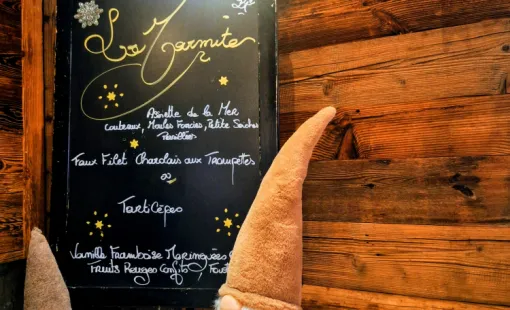 La Marmite
Assiette de la Mer
Couteaux, Moules Farcies, Petite Seiches
Persillées
Faux Filet Charolais aux Trompettes
ou
Tarti Cèpes
Vanille Framboise Meringuées
Fruits Rouges Confits